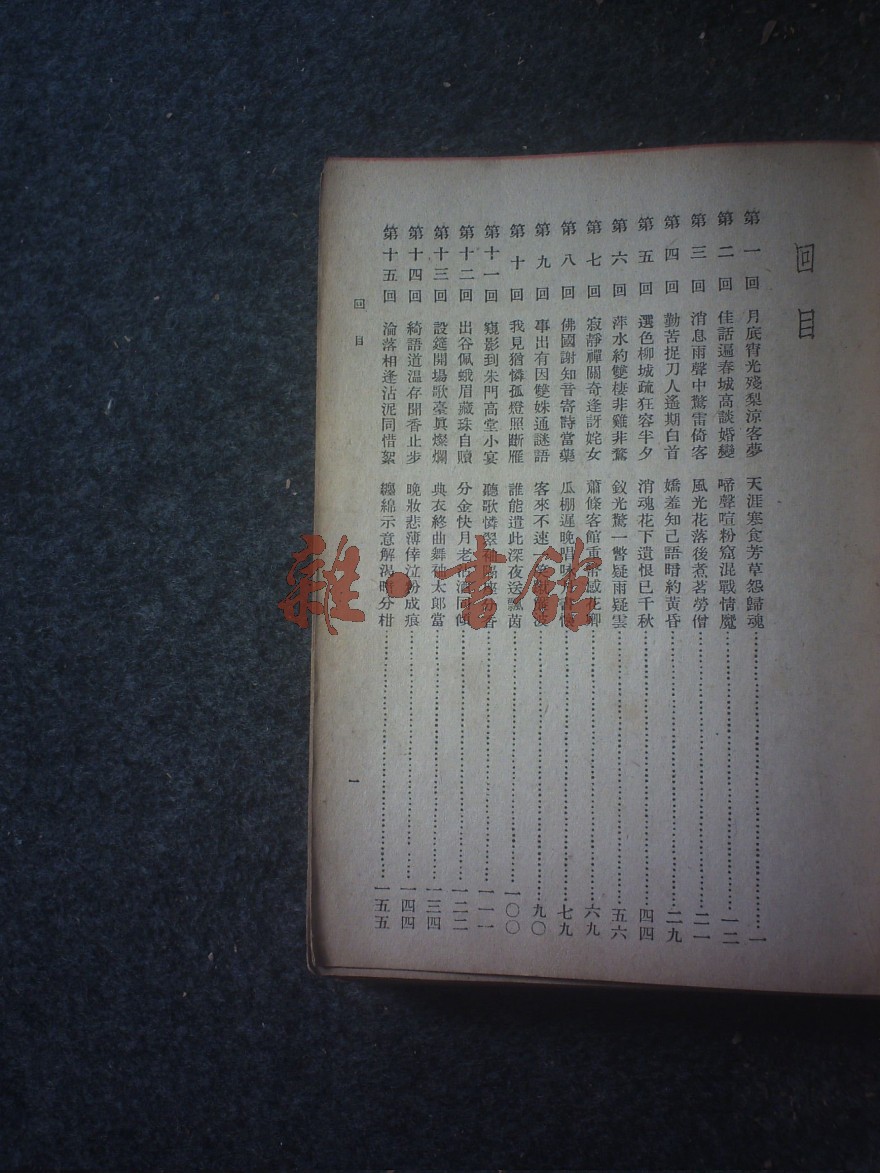 回目
第一回 月底宵光殘梨涼客夢 天涯寒食芳草怨歸魂……一
第二回 佳話遍春城高談婚變 啼聲喧粉窟混戰情魔……一二
第三回 消息雨聲中驚雷倚客 風光花落後煮茗勞僧……二一
第四回 勤苦捉刀人遙期白首 嬌羞知己語暗約黃昏……二九
第五回 選色柳城疏狂容半夕 消魂花下遺恨已千秋……四四
第六回 萍水約雙棲非雞非鶩 釵光驚一瞥疑雨疑雲……五六
第七回 寂靜禪關奇逢訝姹女 蕭條客館重幣感花卿……六九
第八回 佛國謝知音寄詩當藥 瓜棚遲晚唱……七九
第九回 事出有因雙姝通謎語 客來不速……九〇
第十回 我見猶憐孤燈照斷雁 誰能遣此深夜送飄茵……一〇〇
第十一回 窺影到朱門高堂小宴 聽歌憐翠袖隔座分香……一一一
第十二回 出谷佩蛾眉藏珠自贖 分金快月老沽酒同傾……一二二
第十三回 設筵開場歌臺眞燦爛 典衣終曲舞袖太郎當……一三四
第十四回 綺語道溫存聞香止步 晚妝悲薄倖泣粉成痕……一四四
第十五回 淪落相逢沾泥同惜絮 纏綿示意解渴暗分柑……一五五
回目
一
雜·書館